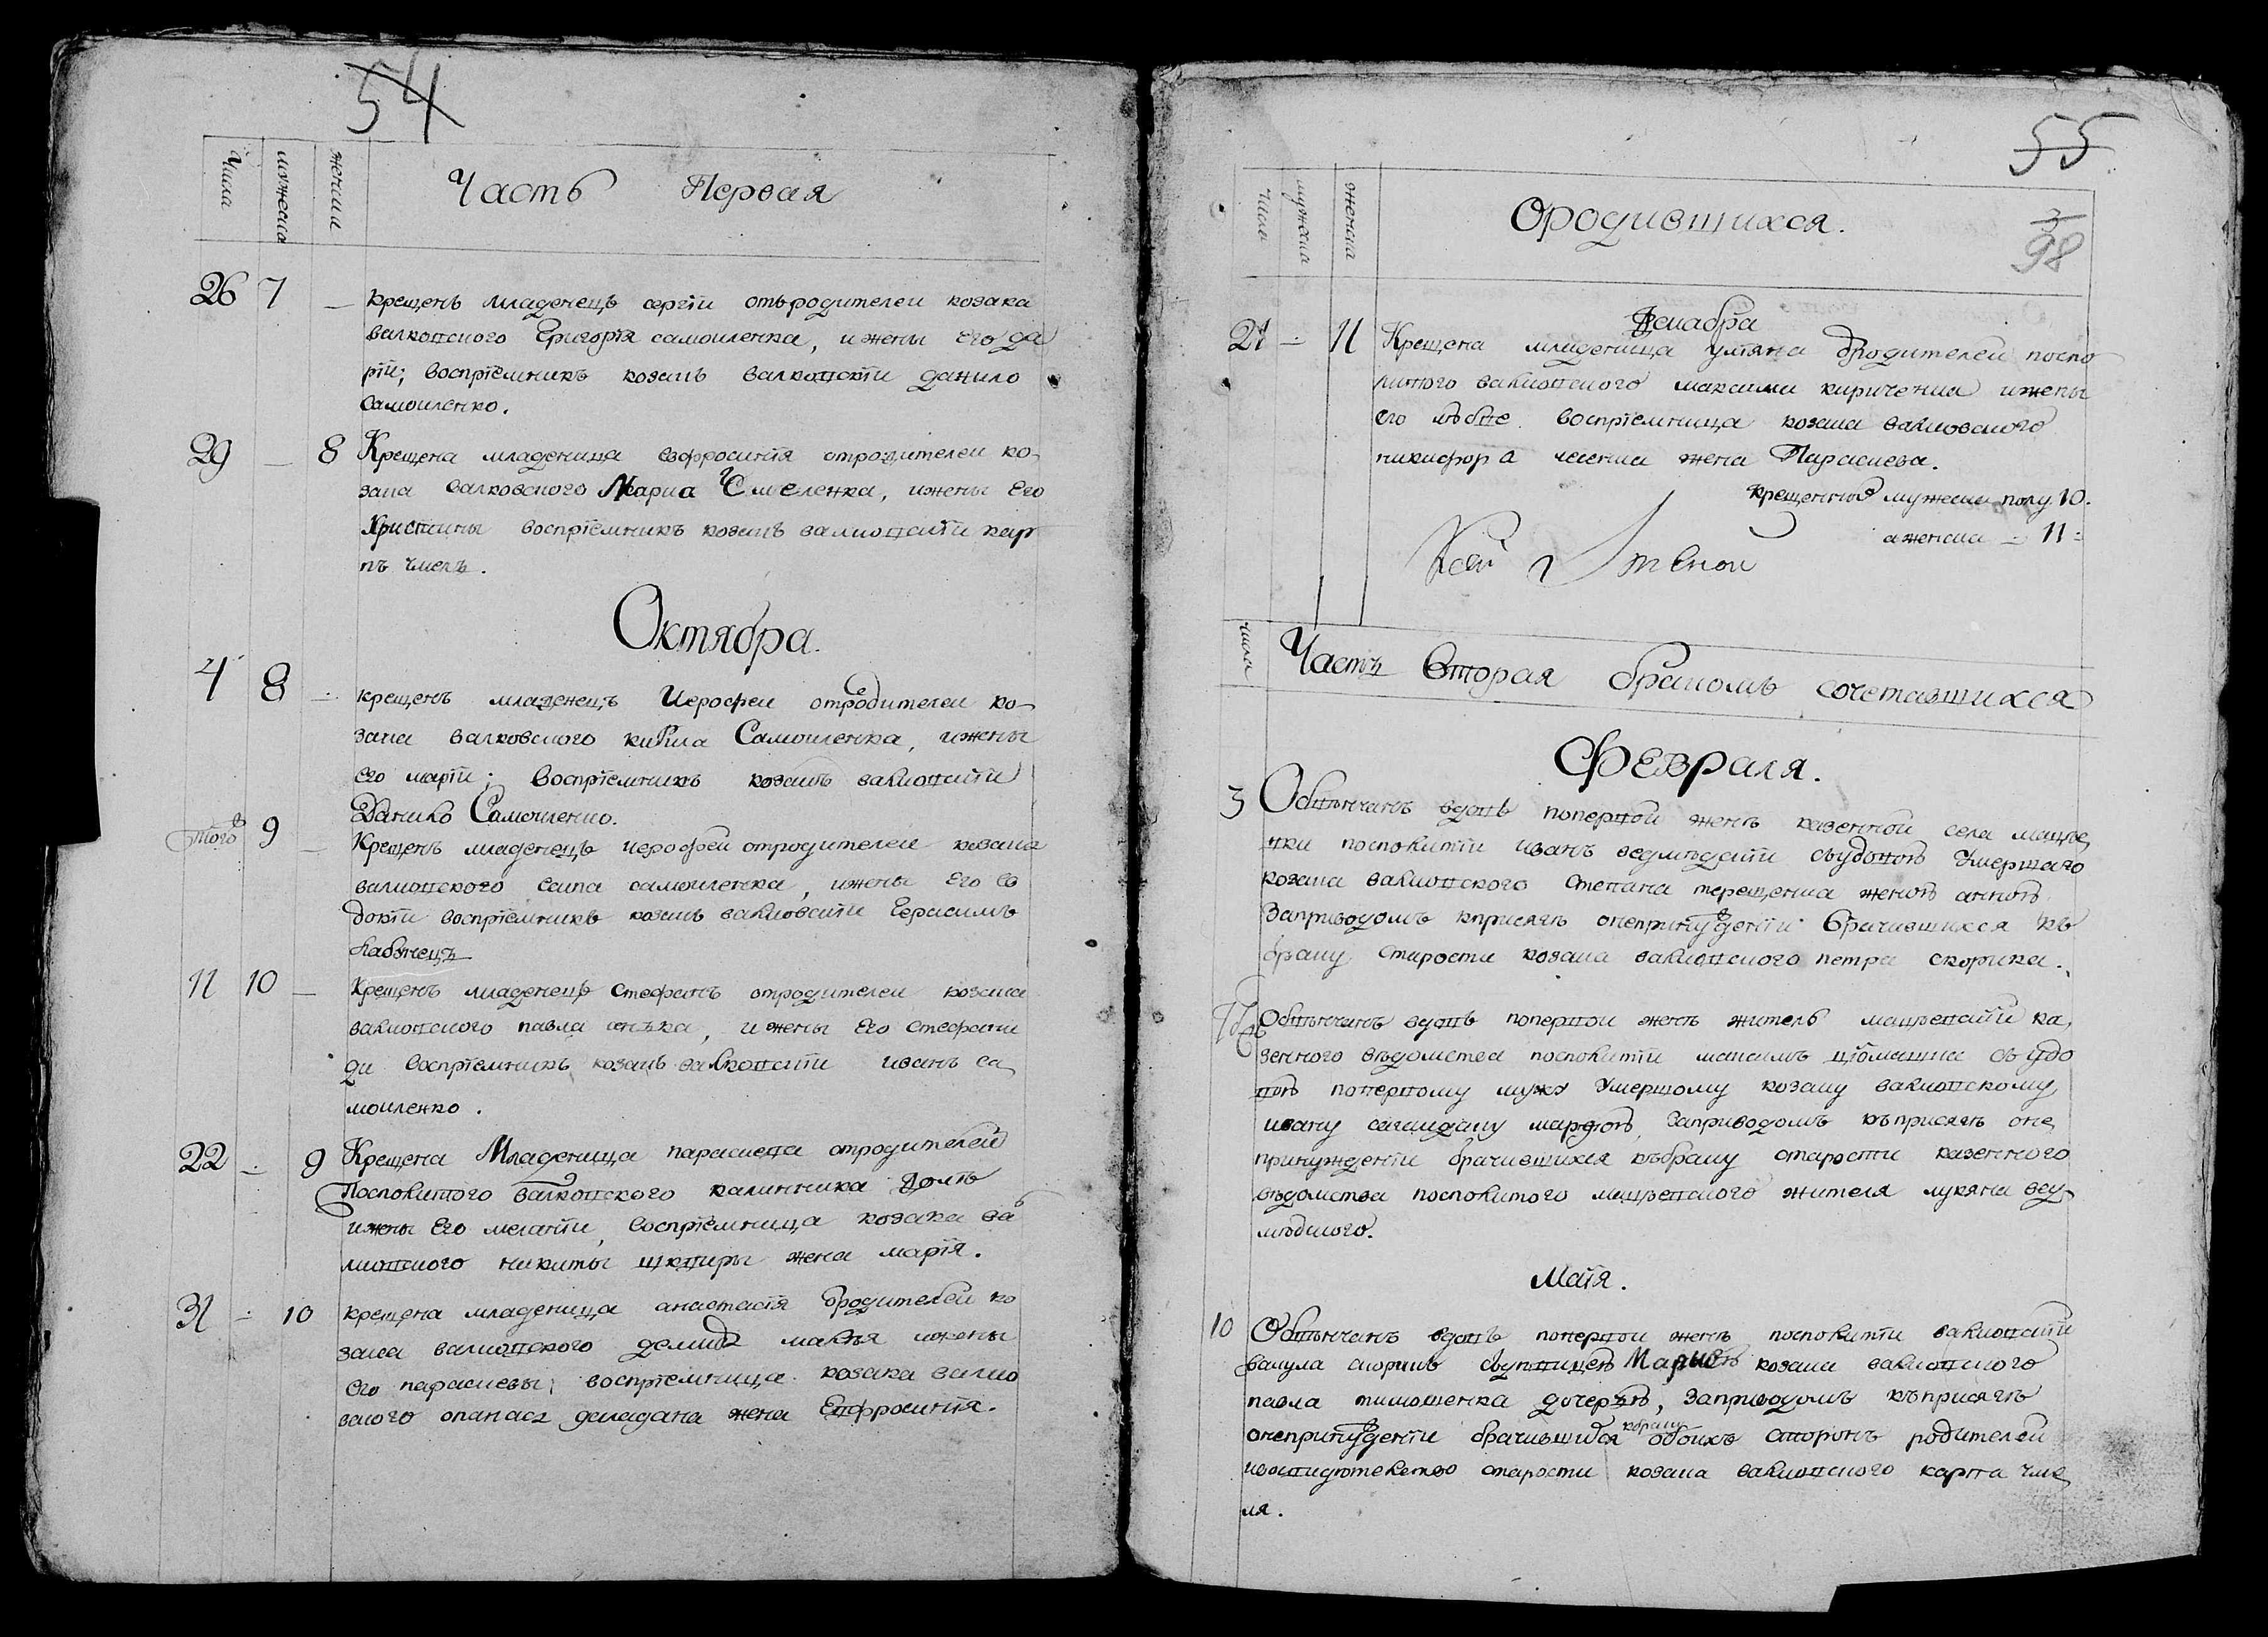 54
Числа мужеска женски Часть Первая
26 7 — крещенъ младенецъ сергїи отъродителеи козака
валковского Григорїя самоиленка, ижены его да
рїи; воспрїемникъ козакъ валковскїи данило
самоиленко.
29 — 8 Крещена младеница евфросинїя отродителеи ко-
зака валковского Карпа Чмеленка, ижены Его
Христины воспрїемникъ козакъ валковскїи кар
пъ чмель.
Октября.
4 8 — крещенъ младенецъ Иерофеи отродителеи ко-
зака валковского кирила Самоиленка, ижены
его марїи; воспрїемникъ козакъ валковскїи
Данило Самоиленко.
Того 9 — Крещенъ младенецъ иерофеи отродителеи козака
валковского самоиленка, ижены Его ев
докїи воспрїемникъ козакъ валковскїи Герасимъ
11 10 — Крещенъ младенецъ стефанъ отродителеи козака
валковского павла, и жены Его стефани
ди воспрїемникъ козакъ валковскїи иванъ са
моиленко.
22 — 9 Крещена Младеница параскева отродителеи
Посполитого валковского калинника
ижены Его меланїи, воспрїемница козака ва
лковского никиты шквиры жена марїя.
31 — 10 крещена младеница анастасїя отродителеи ко
зака валковского демида ижены
его параскевы; воспрїемница козака валко
вского опанаса деладана жена Евфросинїя.
55
число мужеска женска Ородившихся.
3
98
Декабра
21 — 11 Крещена младеница улїяна отродителеи поспо
литого валковского максима кириченка ижены
его воспрїемница козака валковского
никифора жена Параскева.
крещенныхъ мужеска полу 10.
аженска — 11:
числа Часть вторая бракомъ сочетавшихся
Февраля.
3 Обвѣнчанъ вдовъ поперъвой женѣ казенной села мацѣе
вки посполитїи иванъ ведмѣдскїи съудовою Умершаго
козака валковского Степана терещенка женою анною
Заприводомъ кприсягѣ онепринужденїи брачившихся къ
браку старости козака валковского петра скорика.
Обвѣнчанъ вдовъ поперъвои женѣ житель мацѣевскїи ка
зенного вѣдомства посполитїи максимъ съудо
вою поперъвому мужу Умершому козаку валковскому
ивану сагайдаку марфою, Заприводомъ къприсягѣ оне
принужденїи брачившихся къбраку старости казенного
вѣдомства посполитого мацѣевского жителя лукяна вед
мѣдского.
Маїя.
10 Обвѣнчанъ вдовъ поперъвои женѣ посполитїи валковскїи
вакула скорикъ съ Мариею козака валковского
павла тимошенка дочерью, Заприводомъ къприсягѣ
онепринужденїи брачившихся къбраку обоихъ сторонъ родителеи
исвидѣтельство старости козака валковского карпа чме
ля.